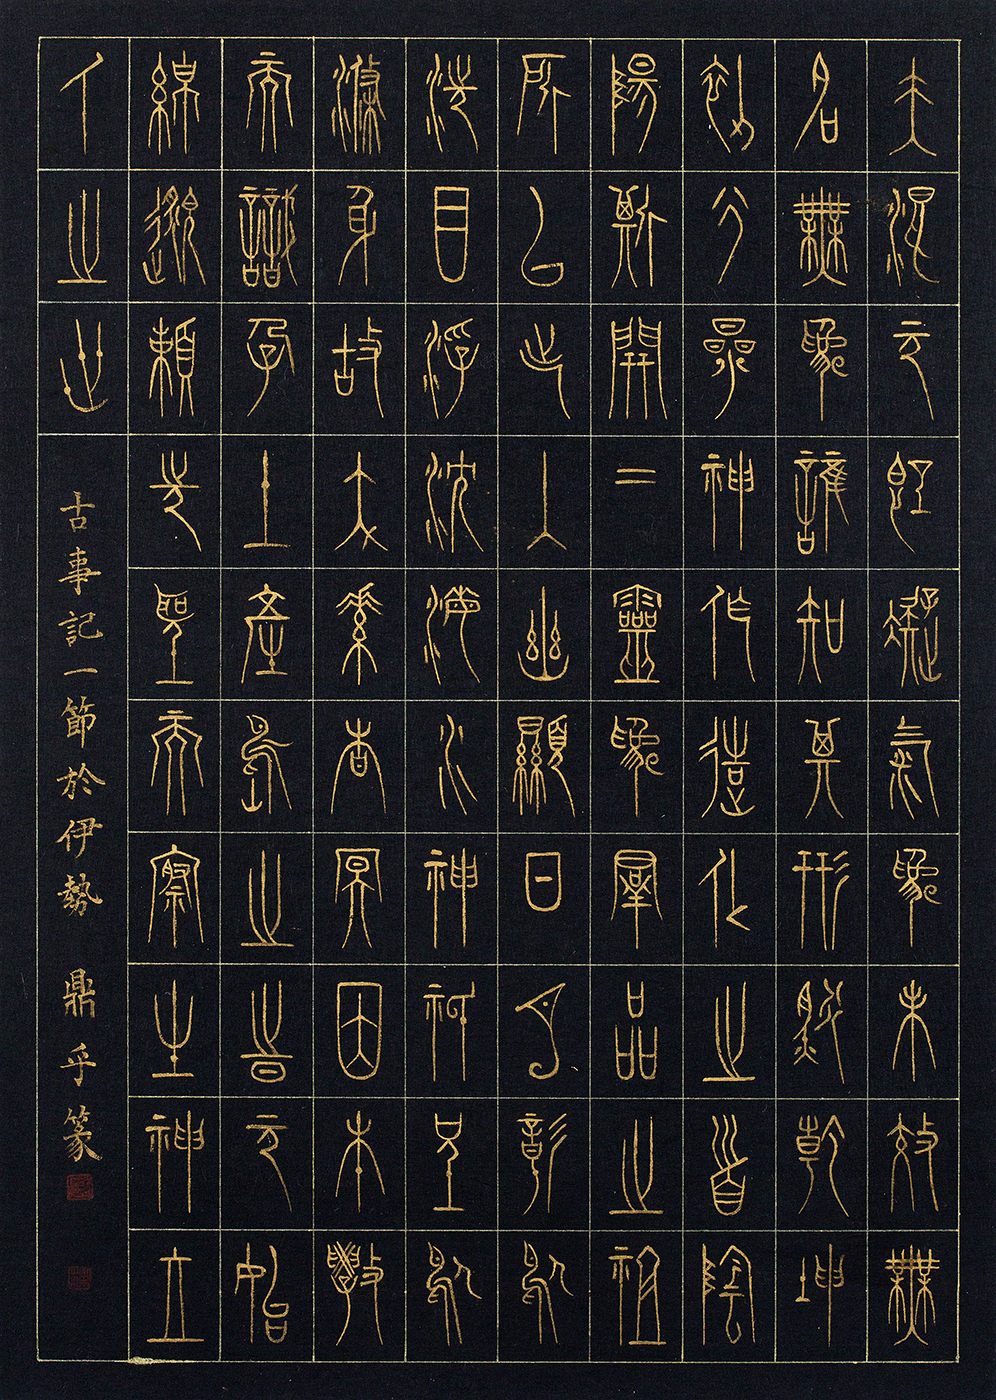 夫混元既凝氣象未效無
名無爲誰知其形然乾坤
初分參神作造化之首陰
陽斯開二靈爲羣品之祖
所以出入幽顯日月彰於
洗目浮沈海水神祇呈於
滌身故太素杳冥因本教
而識孕土産嶋之時元始
綿邈頼先聖而察生神立
人之世
古事記一節於伊勢 鼎乎篆